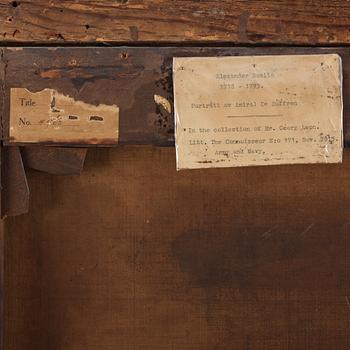 Title
No.
Alexander Roslin
1718 - 1793.
Porträtt av Amiral De Suffren
In the collection of Mr. Georg Leon.
Litt. The Connaisseur N:o 171, Nov.
Army and Navy.